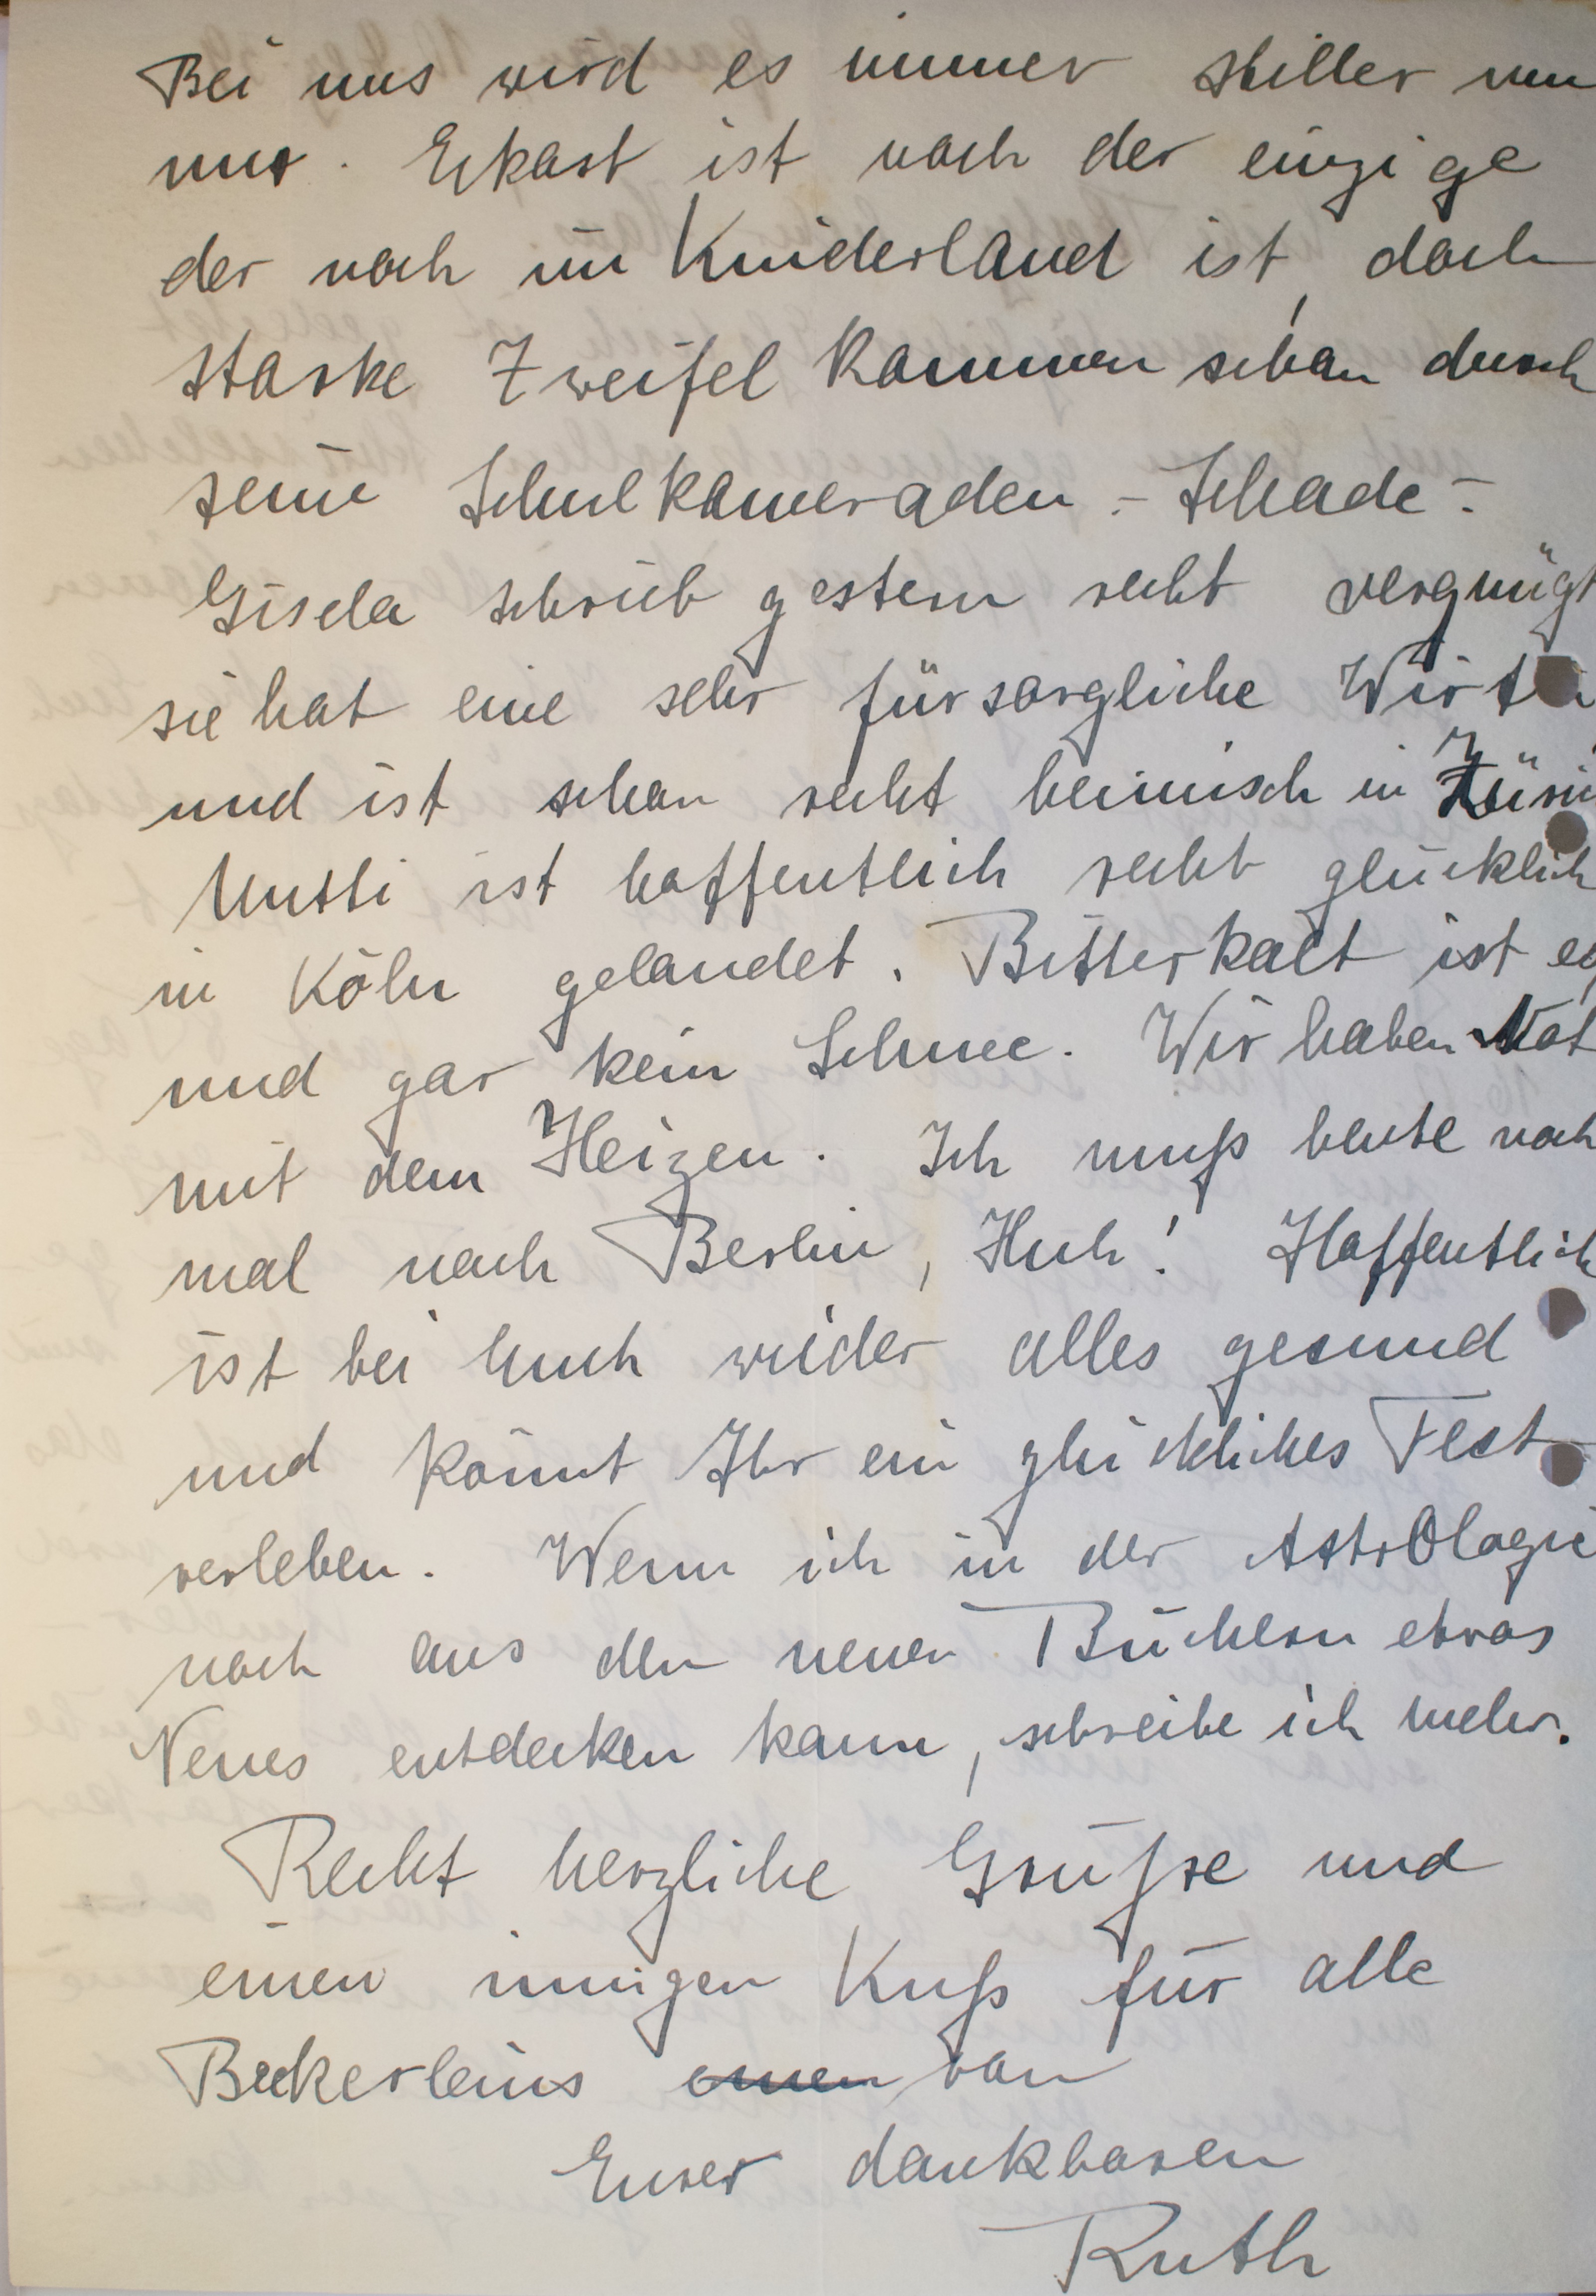 Bei uns wird es immer stiller um
uns. Eckart ist noch der einzige
der noch im Kinderland ist, doch
starke Zweifel kommen schon durch
seine Schulkameraden. - Schade -
Gisela schrieb gestern recht vergnügt
sie hat eine sehr fürsorgliche Wirtin
und ist schon recht heimisch in
Mutti ist hoffentlich recht glücklich
in Köln gelandet. Bitterkalt ist es
und gar kein Schnee. Wir haben Not
mit dem Heizen. Ich muß heute noch
mal nach Berlin, Huh! Hoffentlich
ist bei Euch wieder alles gesund
und könnt Ihr ein glückliches Fest
verleben. Wenn ich in der Astrologie
noch aus den neuen Büchern etwas
Neues entdecken kann, schreibe ich mehr.
Recht herzliche Grüße und
einen innigen Kuß für alle
Beckerleins von
Eurer dankbaren
Ruth